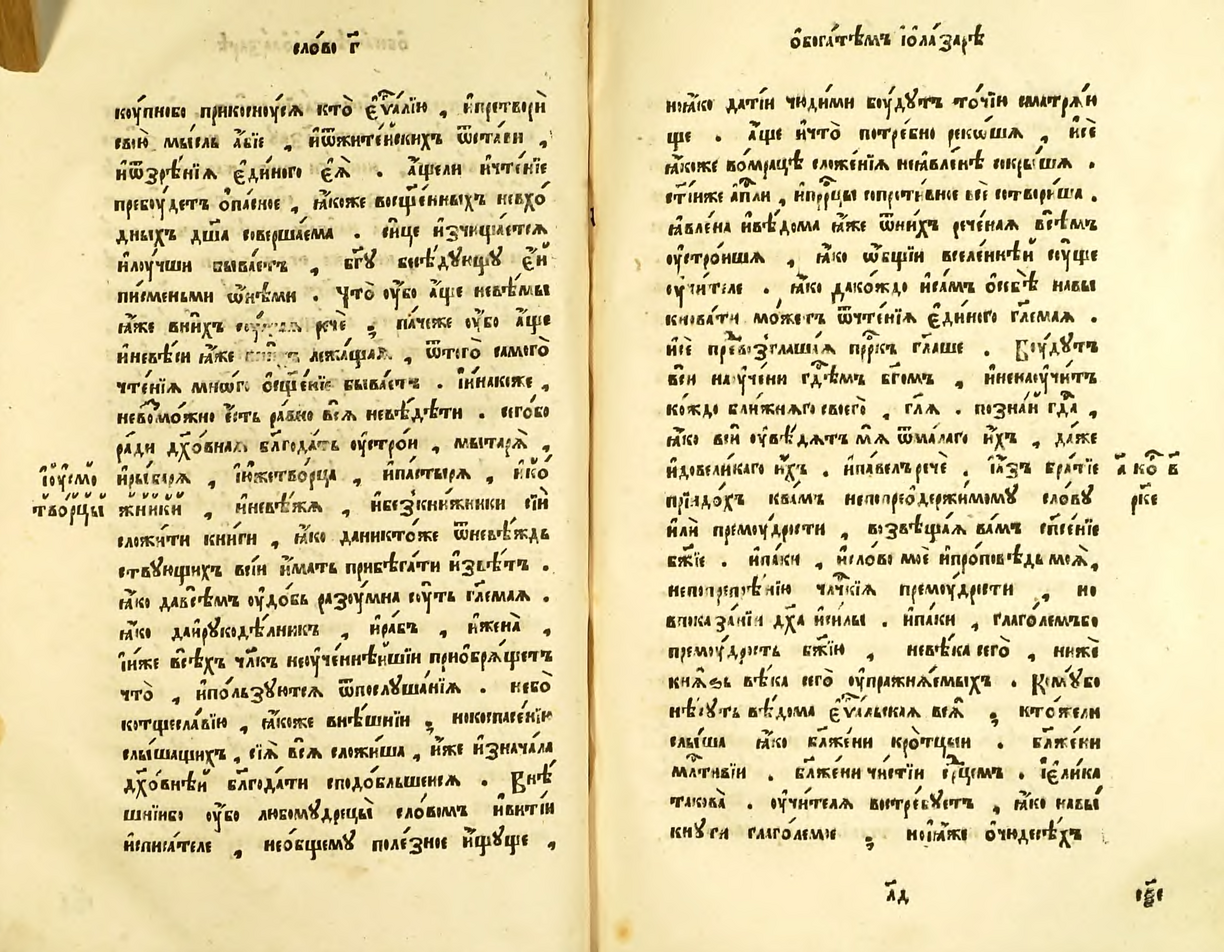 сло́во г҃
коу́пнѡбо прикосноу́сѧ кто̀ є҆ѵⷢ҇а́лїю , и҆претворѝ
свою̀ мы́сль а҆́бїе , и҆ѿжите́йскихъ ѿста́ви ,
и҆ѿзрѣ́нїѧ є҆ди́ного є҆ѧ̀ . а҆́щели и҆чте́нїе
пребоу́детъ ѻ҆па́сное , ꙗ҆́коже восщ҃е́нныхъ невхо́
дныхъ дш҃а̀ соверша́ема . си́це и҆зчища́етсѧ
и҆лоу́чши быва́етъ , бг҃ꙋ бесѣ́дꙋющꙋ є҆́й
пи́сменьми ѻ҆́нѣми . Что̀ оу҆́бо а҆́ще невѣ́мы
ꙗ҆́же вни́хъ речѐ ; па́чеже оу҆́бо а҆́ще
и҆невѣ́си ꙗ҆́же лежа́щаѧ , ѿтого̀ самого̀
чте́нїѧ мно́го ѻ҆сщ҃е́нїе быва́етъ . и҆и҆на́коже ,
невозмо́жно є҆́сть ра́вно всѧ̀ невѣ́дѣти . сего́бо
ра́ди дх҃о́внаѧ блг҃ода́ть оу҆стро́и , мытарѧ̀ ,
и҆рыбарѧ̀ , и҆ю҆жетво́рца , и҆па́стырѧ , и҆ко́
жники , и҆неве́жѧ , и҆безкни́жники сїѝ
сложи́ти кни́ги , ꙗ҆́ко даникто́же ѿневѣ́ждь
ствꙋющихъ всїѝ и҆́мать прибѣга́ти и҆звѣ́тъ .
ꙗ҆́ко давсѣ́мъ оу҆до́бь разоу́мна соу́ть гл҃емаѧ .
ꙗ҆́ко даи҆рꙋкодѣ́лникъ , и҆ра́бъ , и҆жена̀ ,
и҆и҆́же всѣ́хъ чл҃къ неоуче́ннѣйшїи приѡбрѧ́щетъ
что̀ , и҆по́льзꙋютсѧ ѿпослꙋша́нїѧ . небо̀
котщесла́вїю , ꙗ҆́коже внѣ́шнїи ; нокоспасе́нїю
слы́шащихъ , сїѧ̀ всѧ̀ сложи́ша , и҆́же и҆знача́ла
дх҃о́внѣй блг҃ода́ти сподо́бльшеисѧ . Внѣ́
шнїибо оу҆́бо любомꙋ́дрецы̀ сло́вомъ и҆вити́и
и҆списа́теле , неѻ҆́бщемꙋ поле́зное и҆́щꙋще ,
і҆оусмо
тво́рцы
ѻ҆бога́тѣмъ і҆ѻла́зарѣ
ноꙗ҆́ко да́тїи чю́дими боу́дꙋтъ то́чїю сматрѧ́ю
ще . а҆́ще и҆что̀ потре́бно реко́шѧ , и҆сѐ
ꙗ҆́коже вомра́цѣ сложе́нїѧ неꙗ҆вле́нѣ сокры́шѧ .
ст҃і́иже а҆пⷭ҇ли , и҆прⷪ҇рцы сопроти́вное всѐ сотвори́ша .
ꙗ҆вле́на и҆вѣ́дома ꙗ҆́же ѿни́хъ рече́наѧ всѣ́мъ
оу҆стро́ишѧ , ꙗ҆́ко ѻ҆́бщїи вселе́ннѣй соу́ще
оу҆чи́теле . ꙗ҆́ко дако́ждо и҆са́мъ ѻ҆себѣ̀ навы
кнова́ти мо́жетъ ѿчте́нїѧ є҆ди́ного гл҃емаѧ .
и҆сѐ превозглаша́ѧ прⷪ҇ркъ гл҃аше . Боу́дꙋтъ
всѝ наоу́чени гдⷭ҇ѣмъ бг҃омъ , и҆ненаоу́читъ
ко́ждо бли́жнѧго своего̀ , гл҃ѧ . позна́й гдⷭ҇а ,
ꙗ҆́ко всѝ оу҆вѣ́дѧтъ мѧ̀ ѿма́лаго и҆́хъ , да́же
и҆довели́каго и҆́хъ . и҆па́велъ речѐ . і҆а҆́зъ бра́тїе
прїидо́хъ ква́мъ непопреѡдержи́момꙋ сло́вꙋ
и҆лѝ премоу́дрости , возвѣща́ѧ ва́мъ сп҃се́нїе
бж҃їе . и҆па́ки , и҆сло́во моѐ и҆про́повѣдь моѧ̀ ,
непопрепрѣ́нїю чл҃ческїѧ премоу́дрости , но
впоказа́нїи дх҃а и҆си́лы . и҆па́ки , глаго́лемъбо
премоу́дрость бж҃їю , невѣ́ка сего̀ , нижѐ
кнѧ́зь вѣ́ка сего̀ оу҆пражнѧ́емыхъ . Комꙋ́бо
нѣ́сꙋть вѣ́дома є҆ѵⷢ҇а́льскаѧ всѧ̀ ; кто́жели
слы́ша ꙗ҆́ко бл҃же́ни кро́тцыи . бл҃же́ни
млⷭ҇тивїи . бл҃же́ни чи́стїи срⷣцемъ . і҆є҆ли́ка
такова̀ . оу҆чи́телѧ востре́бꙋетъ , ꙗ҆́ко навы́
кнꙋти глаго́лемое ; ноі҆ꙗ҆́же ѻ҆чюдесѣ́хъ
а҃ ко҃ в҃
л҃д